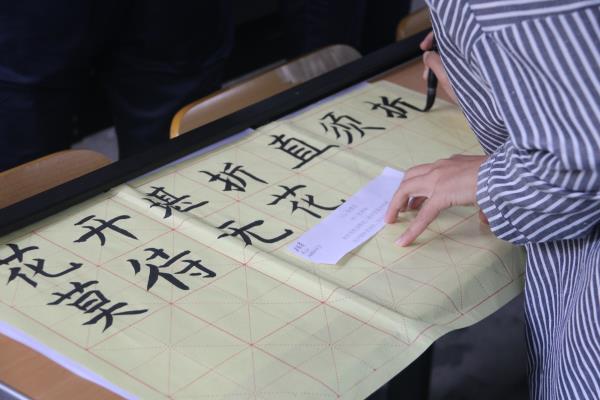 花开堪折直须折
莫待无花